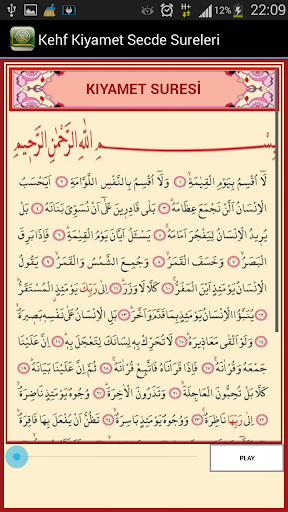 22:09
12%
Kehf Kiyamet Secde Sureleri
KIYAMET SURESİ
بِسْمِ اللّٰهِ الرَّحْمٰنِ الرَّحِيمِ
لَٓا اُقْسِمُ بِيَوْمِ الْقِيٰمَةِۙ ﴿١﴾ وَلَٓا اُقْسِمُ بِالنَّفْسِ اللَّوَّامَةِ ﴿٢﴾ اَيَحْسَبُ
الْاِنْسَانُ اَلَّنْ نَجْمَعَ عِظَامَهُ ﴿٣﴾ بَلٰى قَادِرِينَ عَلٰٓى اَنْ نُسَوِّيَ بَنَانَهُ ﴿٤﴾ بَلْ
يُرِيدُ الْاِنْسَانُ لِيَفْجُرَ اَمَامَهُ ﴿٥﴾ يَسْـَٔلُ اَيَّانَ يَوْمُ الْقِيٰمَةِ ﴿٦﴾ فَاِذَا بَرِقَ
الْبَصَرُ ﴿٧﴾ وَخَسَفَ الْقَمَرُ ﴿٨﴾ وَجُمِعَ الشَّمْسُ وَالْقَمَرُ ﴿٩﴾ يَقُولُ
الْاِنْسَانُ يَوْمَئِذٍ اَيْنَ الْمَفَرُّ ﴿١٠﴾ كَلَّا لَا وَزَرَ ﴿١١﴾ اِلٰى رَبِّكَ يَوْمَئِذٍ الْمُسْتَقَرُّ
﴿١٢﴾ يُنَبَّؤُا الْاِنْسَانُ يَوْمَئِذٍ بِمَا قَدَّمَ وَاَخَّرَ ﴿١٣﴾ بَلِ الْاِنْسَانُ عَلٰى نَفْسِهِ بَصِيرَةٌ
﴿١٤﴾ وَلَوْ اَلْقٰى مَعَاذِيرَهُ ﴿١٥﴾ لَا تُحَرِّكْ بِهِ لِسَانَكَ لِتَعْجَلَ بِهِ ﴿١٦﴾ اِنَّ عَلَيْنَا
جَمْعَهُ وَقُرْاٰنَهُ ﴿١٧﴾ فَاِذَا قَرَاْنَاهُ فَاتَّبِعْ قُرْاٰنَهُ ﴿١٨﴾ ثُمَّ اِنَّ عَلَيْنَا بَيَانَهُ ﴿١٩﴾
كَلَّا بَلْ تُحِبُّونَ الْعَاجِلَةَ ﴿٢٠﴾ وَتَذَرُونَ الْاٰخِرَةَ ﴿٢١﴾ وُجُوهٌ يَوْمَئِذٍ نَاضِرَةٌ
﴿٢٢﴾ اِلٰى رَبِّهَا نَاظِرَةٌ ﴿٢٣﴾ وَوُجُوهٌ يَوْمَئِذٍ بَاسِرَةٌ ﴿٢٤﴾ تَظُنُّ اَنْ يُفْعَلَ بِهَا فَاقِرَةٌ
PLAY